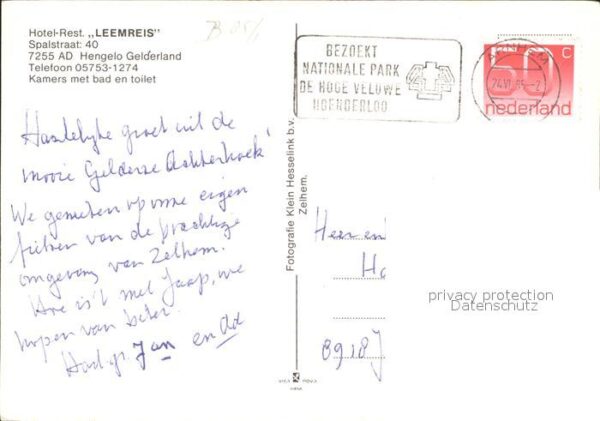 Hotel-Rest. „LEEMREIS"
Spalstraat: 40
7255 AD Hengelo Gelderland
Telefoon 05753-1274
Kamers met bad en toilet
BEZOEKT
NATIONALE PARK
DE HOGE VELUWE
HOENDERLOO
ARNHEM
50 C
nederland
Hartelijke groet uit de
mooie Gelderse Achterhoek
We genieten op onze eigen
fietsen van de prachtige
omgeving van Zelhem.
Hoe is 't met Jaap, we
hopen van beter.
Hart. gr. Jan en Ad
Fotografie Klein Hesselink b.v.
Zelhem.
Heer en
Ha
8918J
privacy protection
Datenschutz